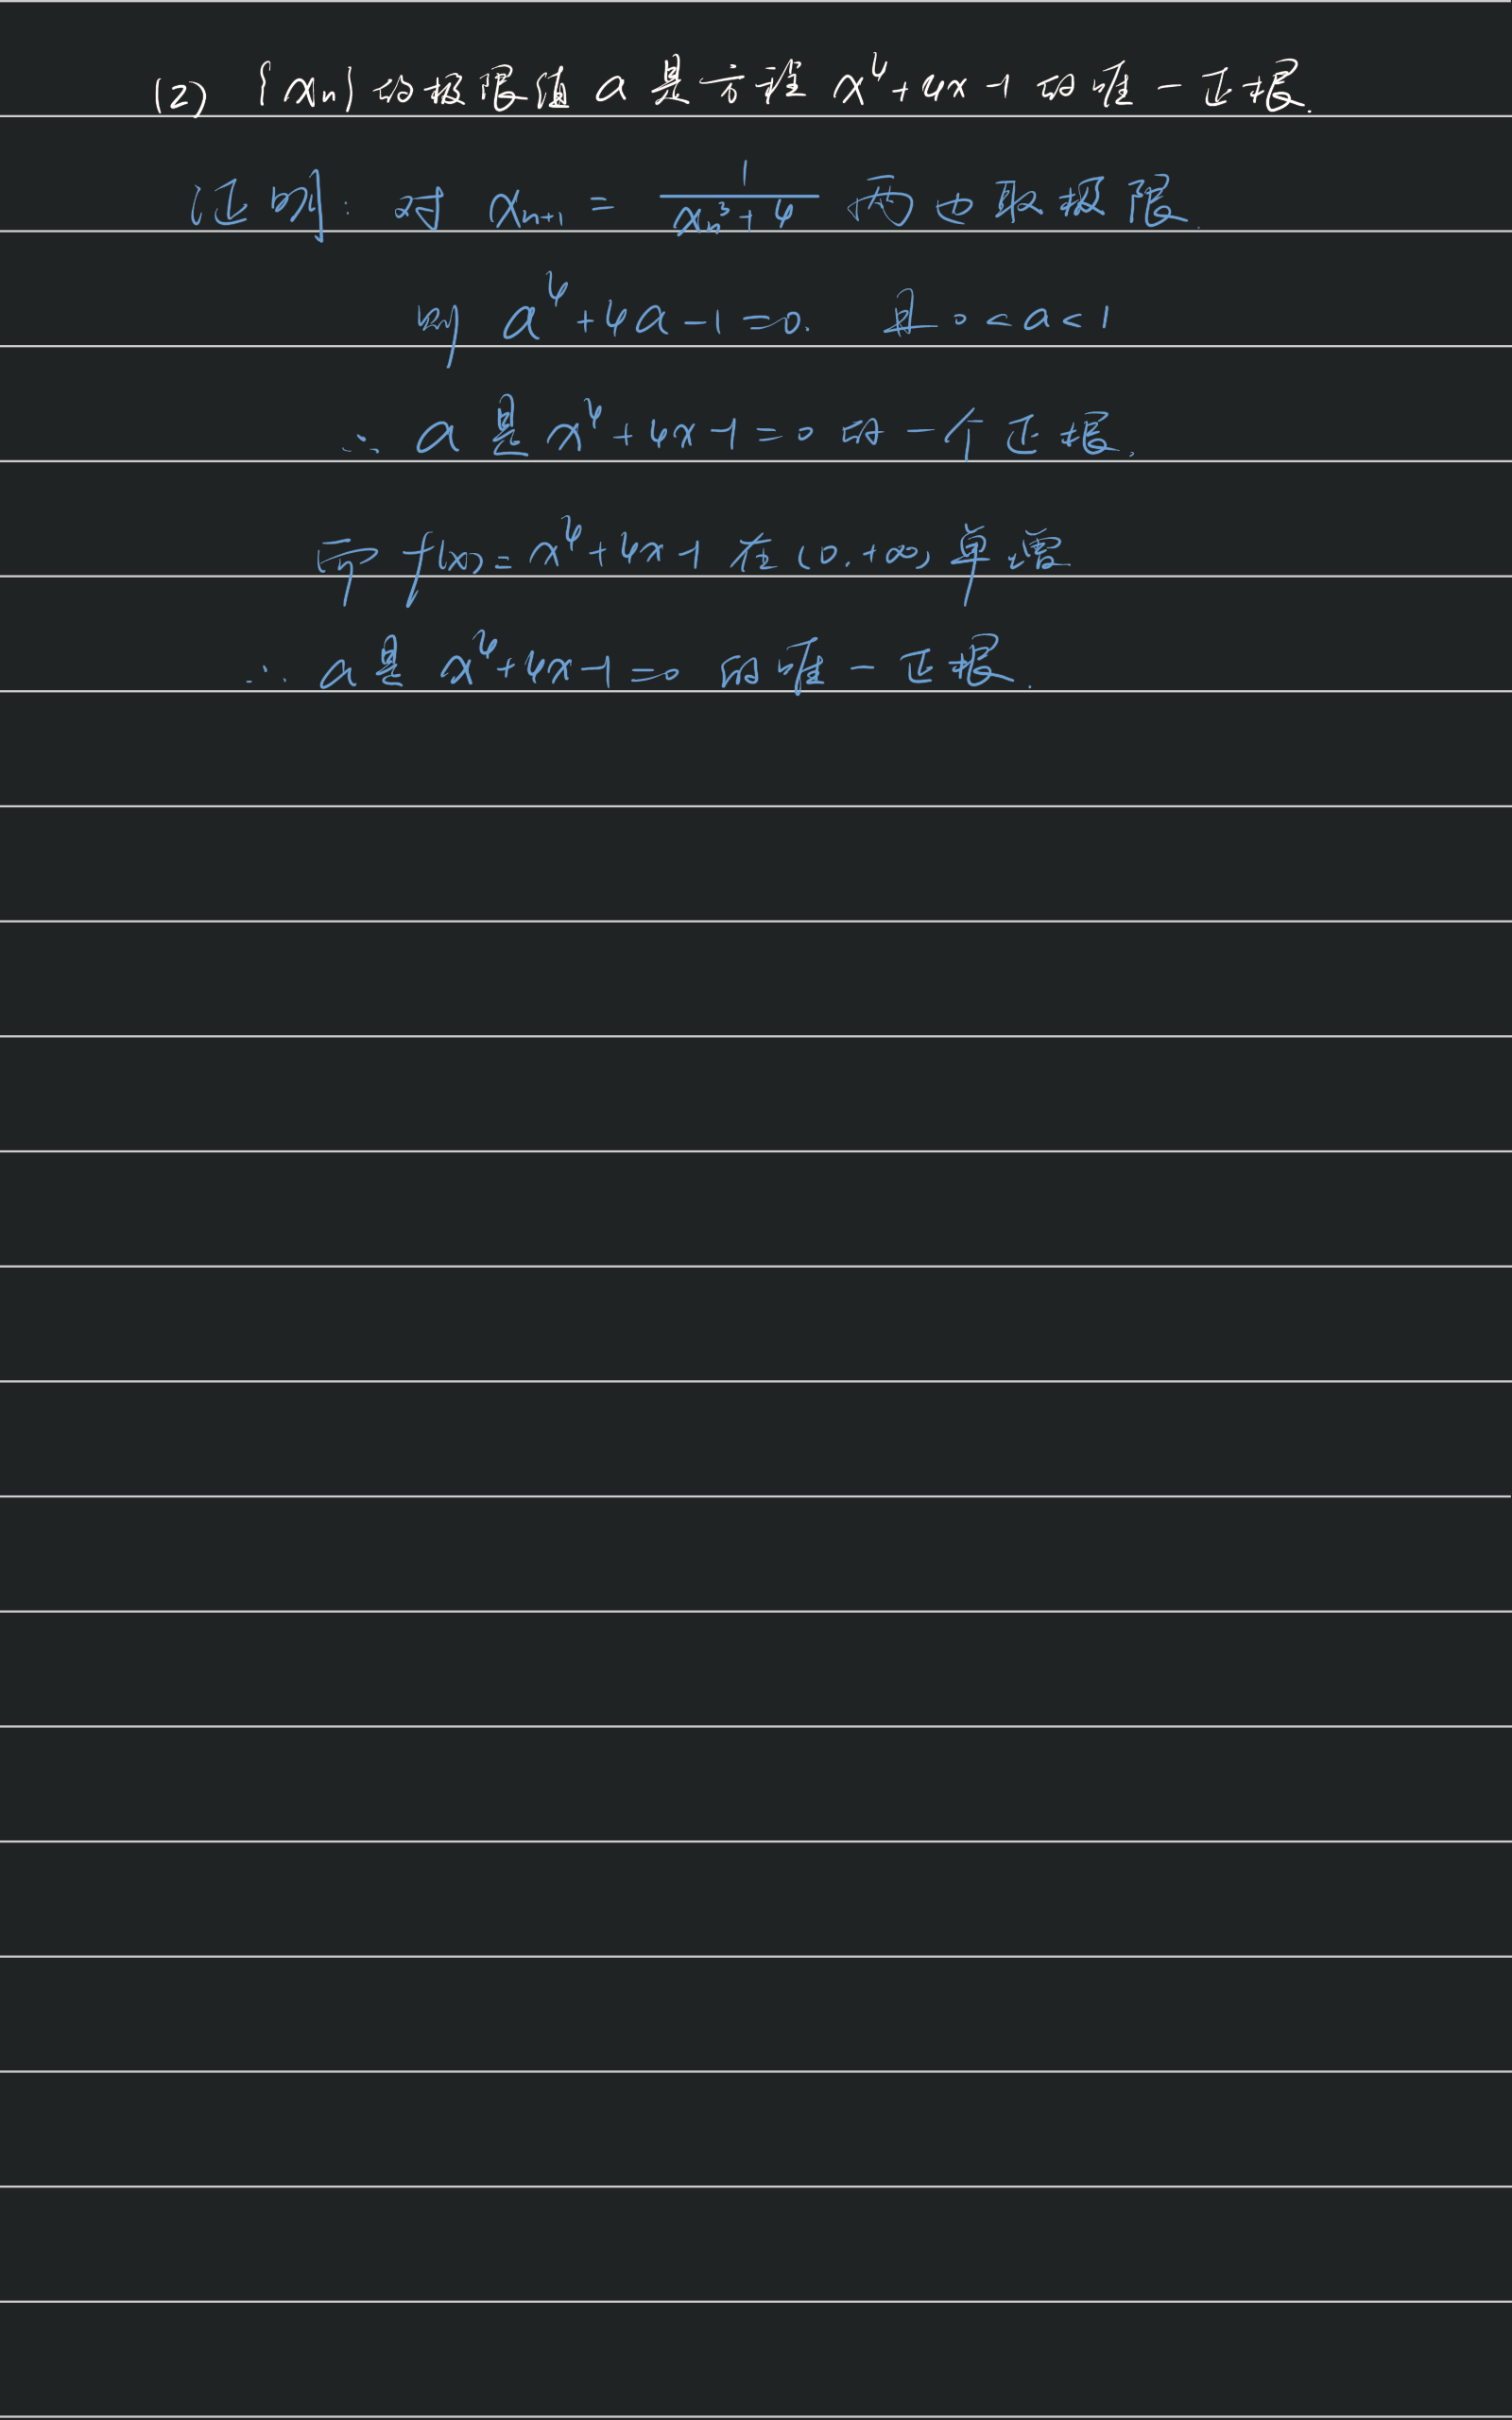 (2) {xn}的极限值a是方程 x⁴+4x-1的唯一正根.
证明: 对 xₙ₊₁ = 1/(xₙ³+4) 两边取极限.
则 a⁴+4a-1=0. 且0<a<1
∴ a是x⁴+4x-1=0的一个正根.
而 f(x)=x⁴+4x-1 在(0,+∞)单增
∴ a是 x⁴+4x-1=0 的唯一正根.